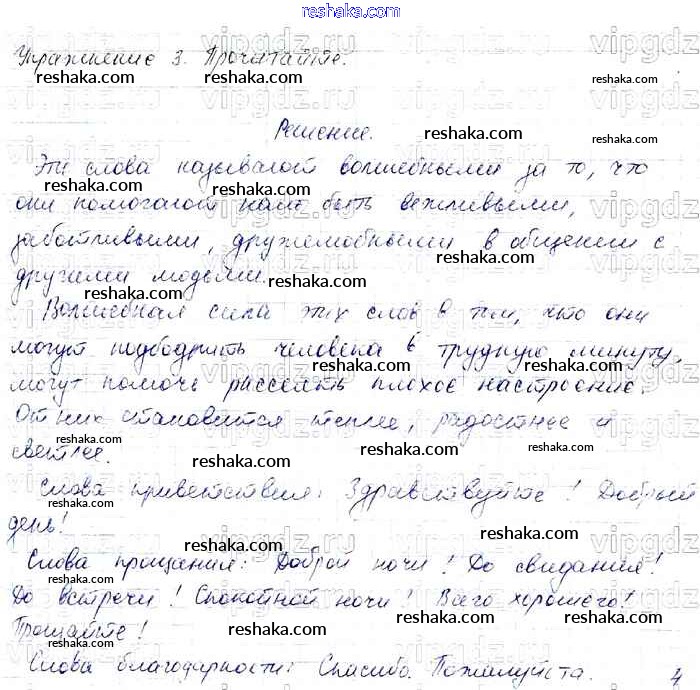 reshaka.com
Упражнение 3. Прочитайте.
Решение.
Эти слова называют волшебными за то, что
они помогают нам быть вежливыми,
заботливыми, дружелюбными в общении с
другими людьми.
Волшебная сила этих слов в том, что они
могут подбодрить человека в трудную минуту,
могут помочь рассеять плохое настроение.
От них становится теплее, радостнее и
светлее.
Слова приветствия: Здравствуйте! Добрый
день!
Слова прощания: Доброй ночи! До свидания!
До встречи! Спокойной ночи! Всего хорошего!
Прощайте!
Слова благодарности: Спасибо. Пожалуйста.
4